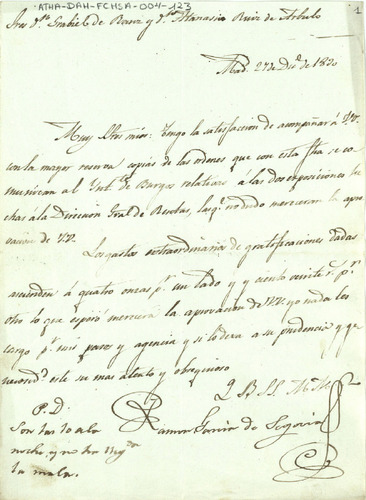 ATHA-DAH-FCHSA-004-123
1
Sres Dn Gabriel de Benez y Dn Atanasio Ruiz de Arbulo
Mad. 27 de Dice de 1820
Muy Sres mios: Tengo la satisfaccion de acompañar á VV.
con la mayor reserva copias de las ordenes que con esta fha se co
munican al Int. de Burgos relativas á las dos exposiciones he
chas a la Direccion Gral de Rentas, las q. no dudo mereceran la apro
vacion de VV.
Los gastos extraordinarios de gratificaciones dadas
ascienden á quatro onzas pr. un lado y y ciento veinte r. pr.
otro lo que espero merecera la aprovacion de VV. yo nada les
cargo pr. mis pasos y agencia y si lo dexo a su prudencia y que
este su mas afecto y obsequioso
Q B S S M M
Ramon Garcia de Segovia
P. D.
Son las 10 de la
noche, y no ha
la mala.